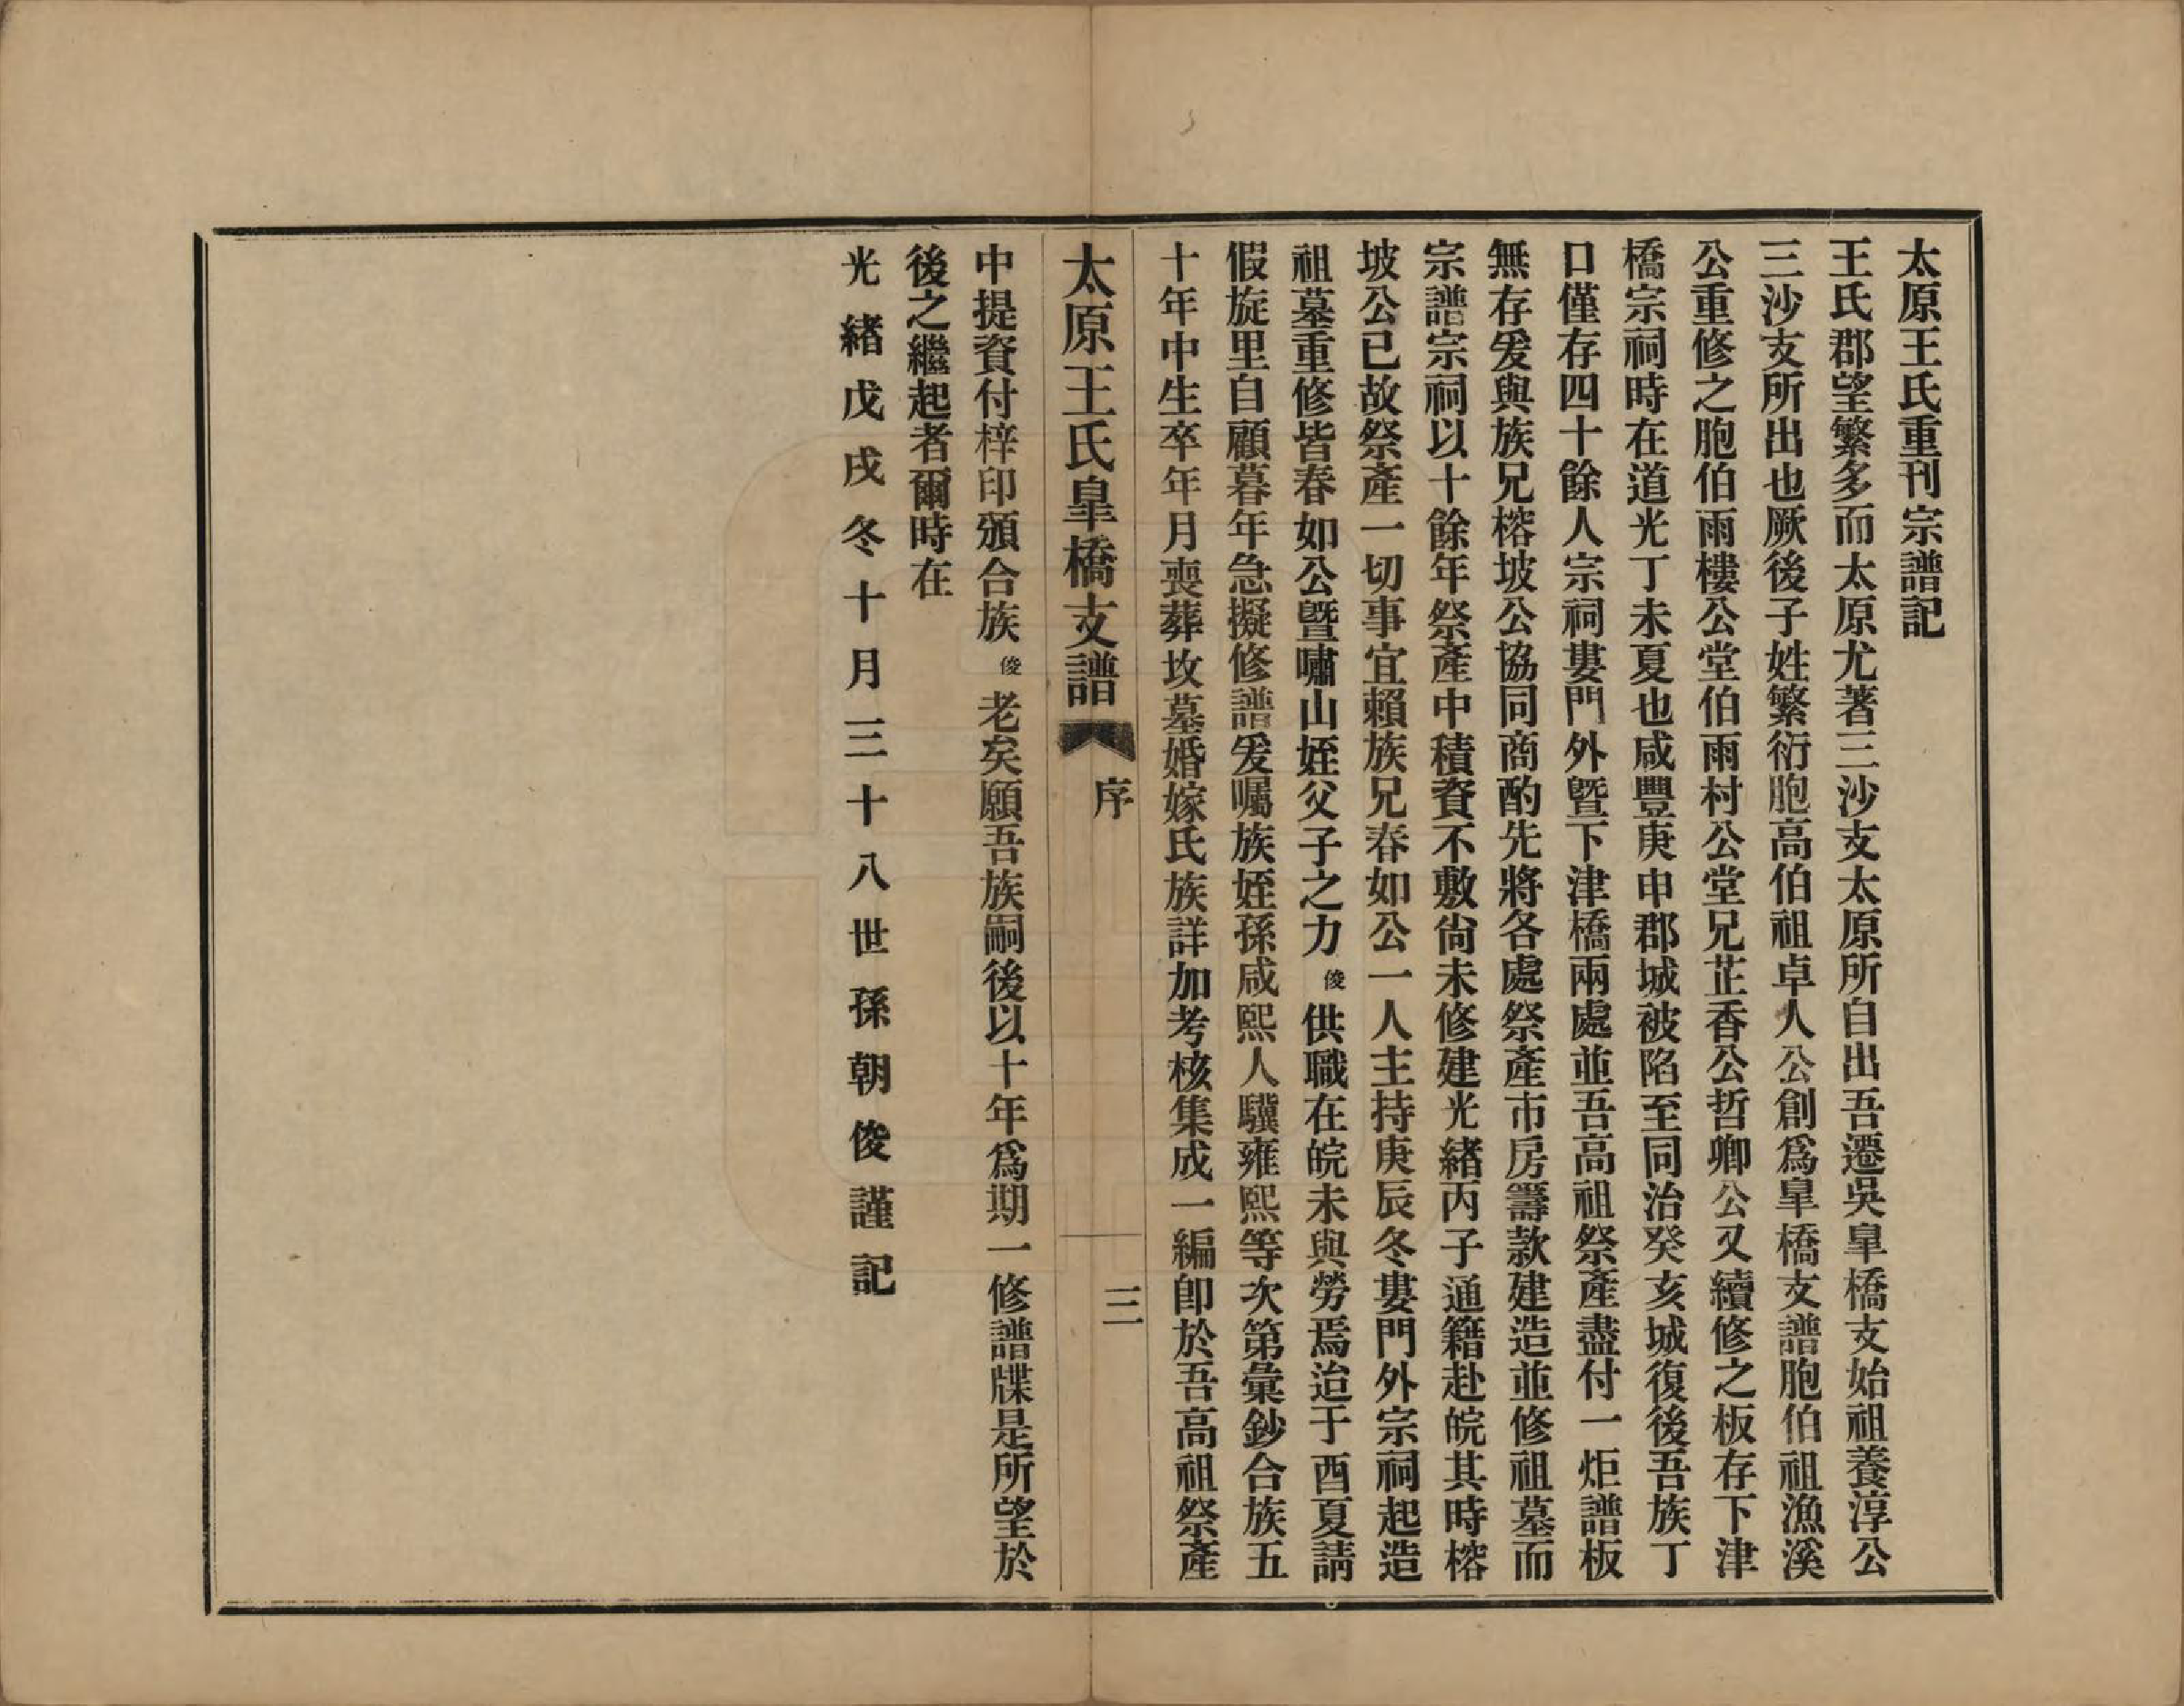 太原王氏重刊宗譜記
王氏郡望繁多而太原尤著三沙支太原所自出吾遷吳皐橋支始祖養淳公
三沙支所出也厥後子姓繁衍胞高伯祖卓人公創爲皐橋支譜胞伯祖漁溪
公重修之胞伯雨樓公堂伯雨村公堂兄芷香公哲卿公又續修之板存下津
橋宗祠時在道光丁未夏也咸豐庚申郡城被陷至同治癸亥城復後吾族丁
口僅存四十餘人宗祠婁門外曁下津橋兩處並吾高祖祭產盡付一炬譜板
無存爰與族兄榕坡公協同商酌先將各處祭產市房籌款建造並修祖墓而
宗譜宗祠以十餘年祭產中積資不敷尙未修建光緒丙子通籍赴皖其時榕
坡公已故祭產一切事宜賴族兄春如公一人主持庚辰冬婁門外宗祠起造
祖墓重修皆春如公曁嘯山姪父子之力俊供職在皖未與勞焉迨于酉夏請
假旋里自顧暮年急擬修譜爰囑族姪孫咸熙人驥雍熙等次第彙鈔合族五
十年中生卒年月喪葬坟墓婚嫁氏族詳加考核集成一編卽於吾高祖祭產
太原王氏皐橋支譜 序 三
中提資付梓印頒合族俊老矣願吾族嗣後以十年爲期一修譜牒是所望於
後之繼起者爾時在
光緒戊戌冬十月三十八世孫朝俊謹記